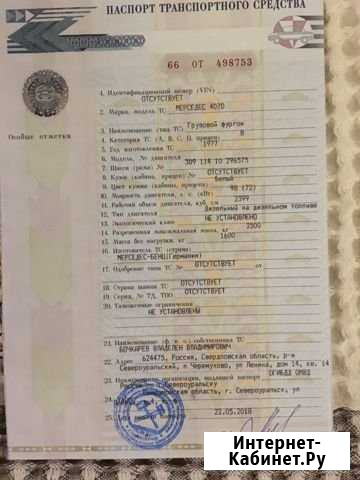 ПАСПОРТ ТРАНСПОРТНОГО СРЕДСТВА
66 ОТ 498753
Особые отметки
1. Идентификационный номер (VIN)
ОТСУТСТВУЕТ
2. Марка, модель ТС МЕРСЕДЕС 407D
3. Наименование (тип ТС) Грузовой фургон
4. Категория ТС (A, B, C, D, прицеп) B
5. Год изготовления ТС 1977
6. Модель, № двигателя
7. Шасси (рама) № ОТСУТСТВУЕТ
8. Кузов (кабина, прицеп) № ОТСУТСТВУЕТ
9. Цвет кузова (кабины, прицепа) Белый
10. Мощность двигателя, л. с. (кВт)
11. Рабочий объем двигателя, куб. см 2399
12. Тип двигателя Дизельный на дизельном топливе
13. Экологический класс НЕ УСТАНОВЛЕНО
14. Разрешенная максимальная масса, кг 3500
15. Масса без нагрузки, кг 1600
16. Изготовитель ТС (страна)
МЕРСЕДЕС-БЕНЦ(Германия)
17. Одобрение типа ТС № ОТСУТСТВУЕТ от
18. Страна вывоза ТС ОТСУТСТВУЕТ
19. Серия, № ТД, ТПО ОТСУТСТВУЕТ
20. Таможенные ограничения
НЕ УСТАНОВЛЕНЫ
21. Наименование (ф. и. о.) собственника ТС
БОЧКАРЕВ ВЛАДЛЕН ВЛАДИМИРОВИЧ
22. Адрес 624475, Россия, Свердловская область, р-н
Североуральский, п Черемухово, ул Ленина, дом 14, кв. 14
23. Наименование организации, выдавшей паспорт ОГИБДД ОМВД
Североуральску
24. Адрес область, г. Североуральск, ул
25. 22.05.2018
Интернет-
Кабинет.Ру